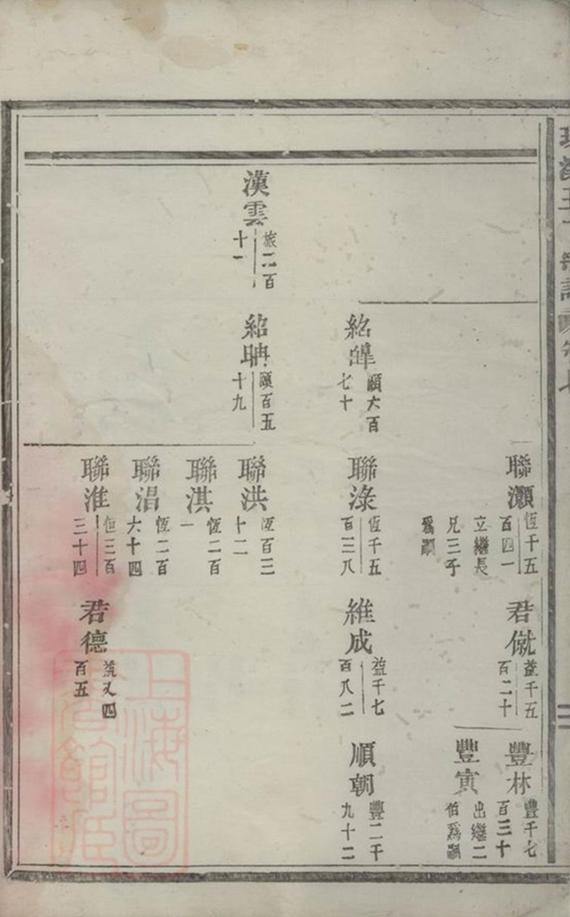 聯灝
恆千五
百四一
立繼長
兄三子
爲嗣
君僦
益千五
百二十
豐林
豐千七
百三十
豐寅
出繼二
伯爲嗣
紹
願六百
七十
聯淥
恆千五
百三八
維成
益千七
百八二
順朝
豐二千
九十二
漢雲
旅二百
十一
紹聃
願百五
十九
聯洪
恆百三
十二
聯淇
恆二百
一
聯淐
恆二百
六十四
聯淮
恆三百
三十四
君德
益又四
百五
上海圖